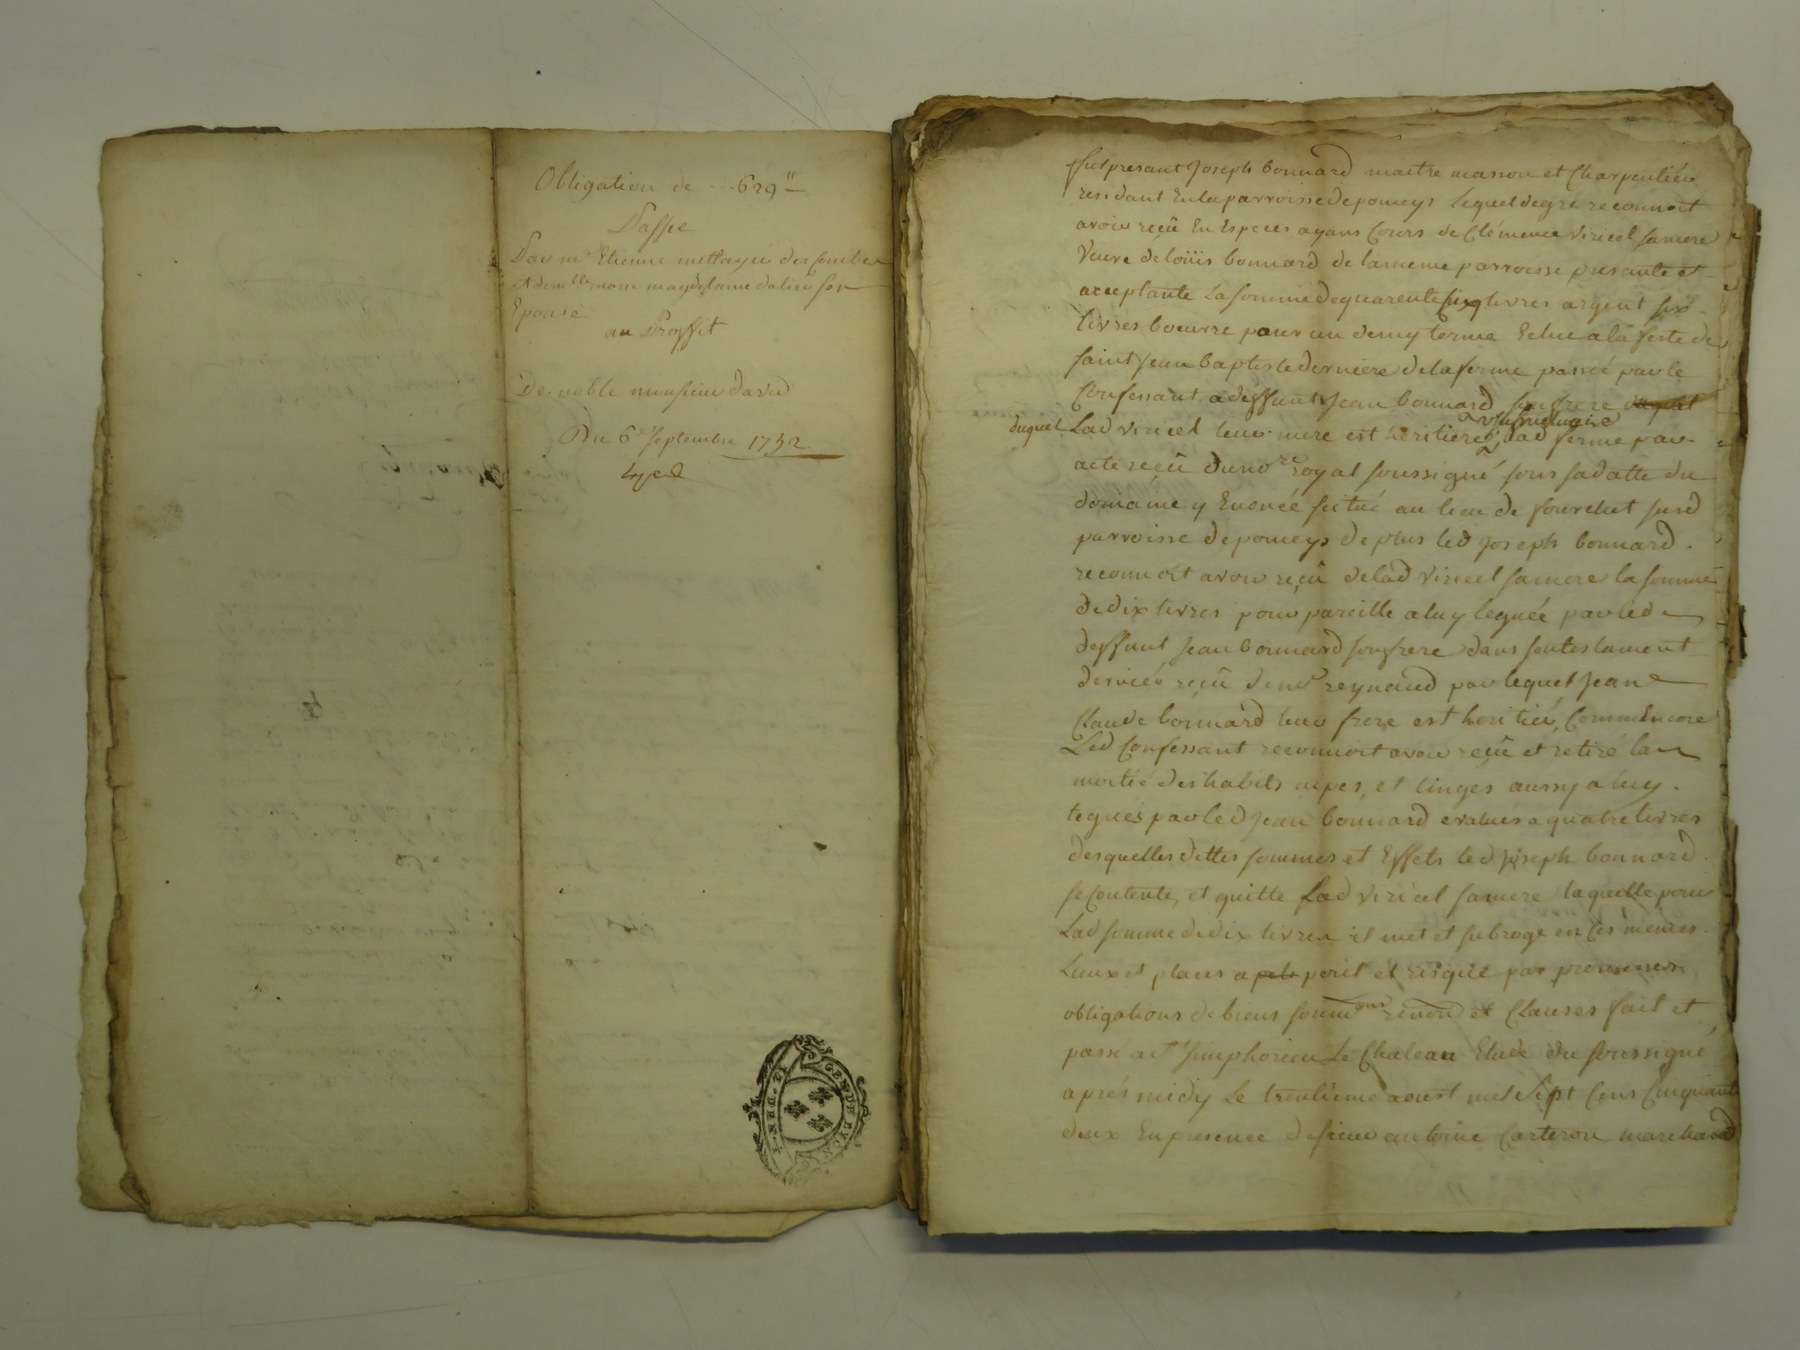 Obligation de ... 629ᴸᴸ
Passée
Par mʳ Etienne mettayer des combes
et demᵉˡˡᵉ marie magdelaine dalier son
Epouse
au Proffit
De noble monsieur david
Du 6ᵉ Septembre 1752
GEN. DE LYON
fut presant Joseph bonnard maitre masson et Charpentiér
residant En la parroisse de pomeys lequel de gré reconnoit
avoir reçû En Especes ayans Cours de Clémence viricel sa mere
veuve de loüis bonnard de la meme parroisse presante et
acceptante La somme de quarente cinq livres argent six
livres beurre pour un demy terme Echu a la feste de
saint Jean baptiste derniere de la ferme passée par le
Confessant a deffunt Jean bonnard son frere
duquel Lad viricel leur mere est héritiere usufruituaire, lad ferme par
acte reçû du noʳᵉ royal soussigné sous sa datte du
domaine y Enoncé scitué au lieu de fourchut susd
parroisse de pomeys de plus led Joseph bonnard
reconnoit avoir reçû de lad viricel sa mere la somme
de dix livres pour pareille a luy leguée par led
deffunt Jean bonnard son frere dans son testament
derniér reçû de mᵉ reynaud par lequel Jean
Claude bonnard leur frere est heritiér, Comm'Encore
Led Confessant reconnoit avoir reçû et retiré la
moitié des habits nipes, et linges aussy a luy
legués par led Jean bonnard evalues a quatre livres
desquelles dittes sommes et Effets led joseph bonnard
se Contente, et quitte Lad viricel sa mere laquelle pour
Lad somme de dix livres il met et subroge en ses mêmes
Lieux et places a peril et risque par promesses
obligations de biens soumᵒⁿˢ renon et Clauses fait et
passé a Sᵗ Simphorien Le Chateau Etude du soussigné
aprés midy Le trentiéme aoust mil sept Cens Cinquante
deux En presence de sieur antoine Carteron marchand